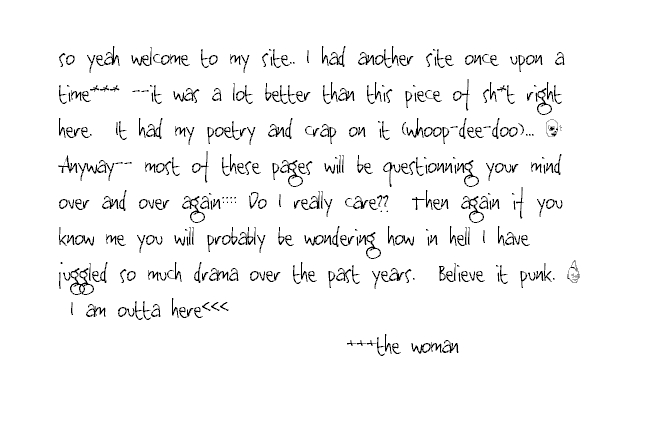 so yeah welcome to my site.. I had another site once upon a
time*** --it was a lot better than this piece of sh*t right
here. It had my poetry and crap on it (whoop-dee-doo)...
Anyway-- most of these pages will be questionning your mind
over and over again:::: Do I really care?? Then again if you
know me you will probably be wondering how in hell I have
juggled so much drama over the past years. Believe it punk.
I am outta here<<<
+++the woman